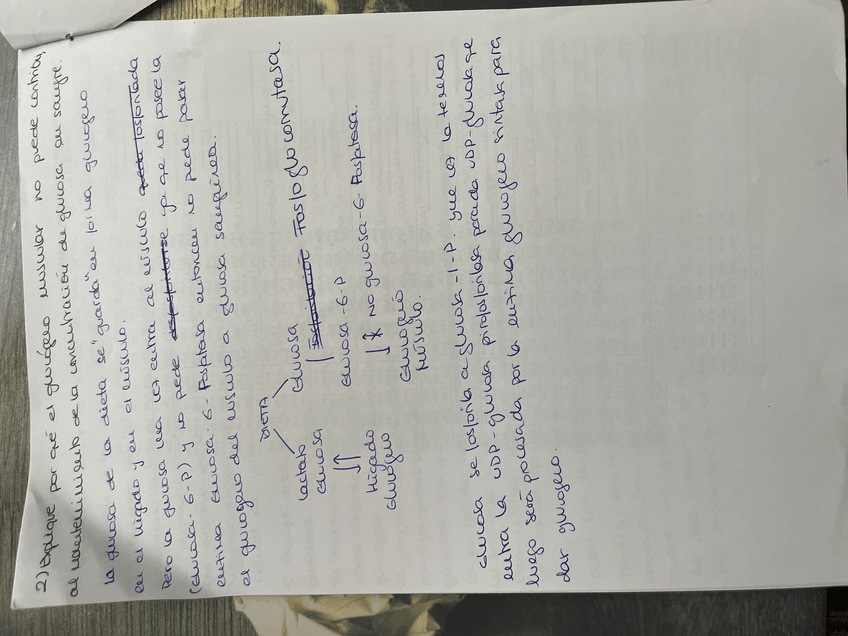 2) Explique por qué el glucógeno muscular no puede contribuir
al mantenimiento de la concentración de glucosa en sangre.
La glucosa de la dieta se "guarda" en forma glucogeno
en el higado y en el músculo.
Pero la glucosa una vez entra al músculo queda fosforilada
(Glucosa-6-P) y no puede desfosforilarse ya que no posee la
enzima Glucosa-6-Fosfatasa entonces no puede pasar
el glucogeno del músculo a glucosa sanguínea.
DIETA
Lactato
Glucosa
Higado
Glucogeno
Glucosa
Fosfoglucomutasa.
Glucosa-6-P
No glucosa-6-Fosfatasa.
Glucogeno
Músculo.
Glucosa se fosforila a glucosa-1-P. que vez la tenemos
entra la UDP-glucosa pirofosforilasa para dar UDP-glucosa que
luego será procesada por la enzima glucogeno sintasa para
dar glucogeno.